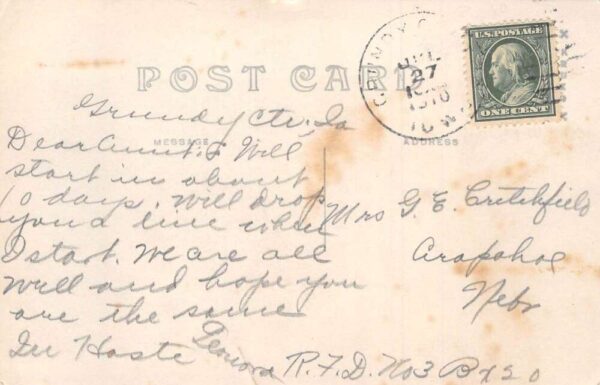 POST CARD
GRUNDY C
JUL
27
1910
IOWA
U.S. POSTAGE
ONE CENT
MESSAGE
ADDRESS
Grundy Ctr, Ia
Dear Aunt: Will
start in about
10 days. Will drop
you a line when
I start. We are all
well and hope you
are the same
In Haste
Leanora
Mrs G. E. Critchfield
Arapahoe
Nebr
R.F.D. No3 Bx 20